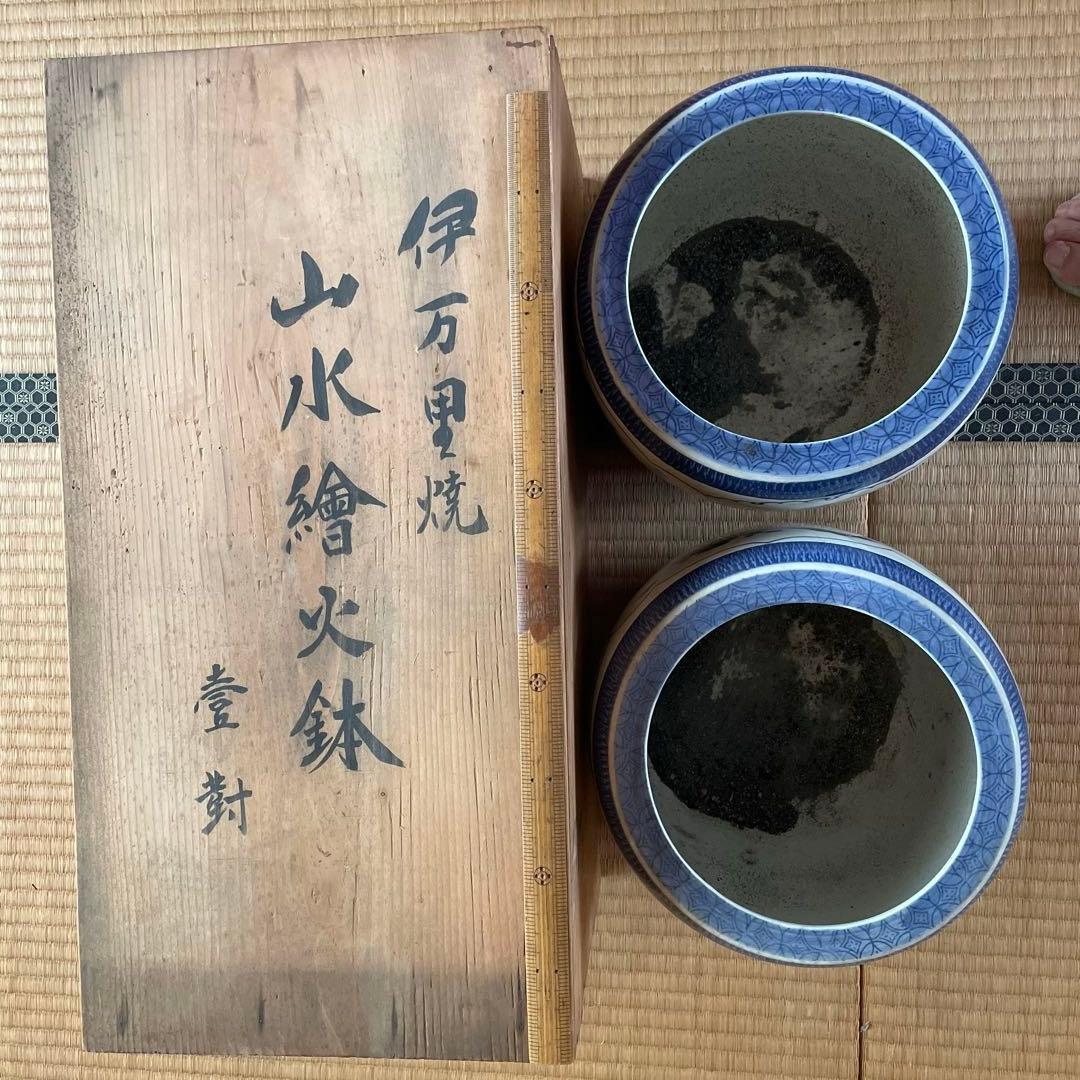 伊万里焼
山水繪火鉢
壹對